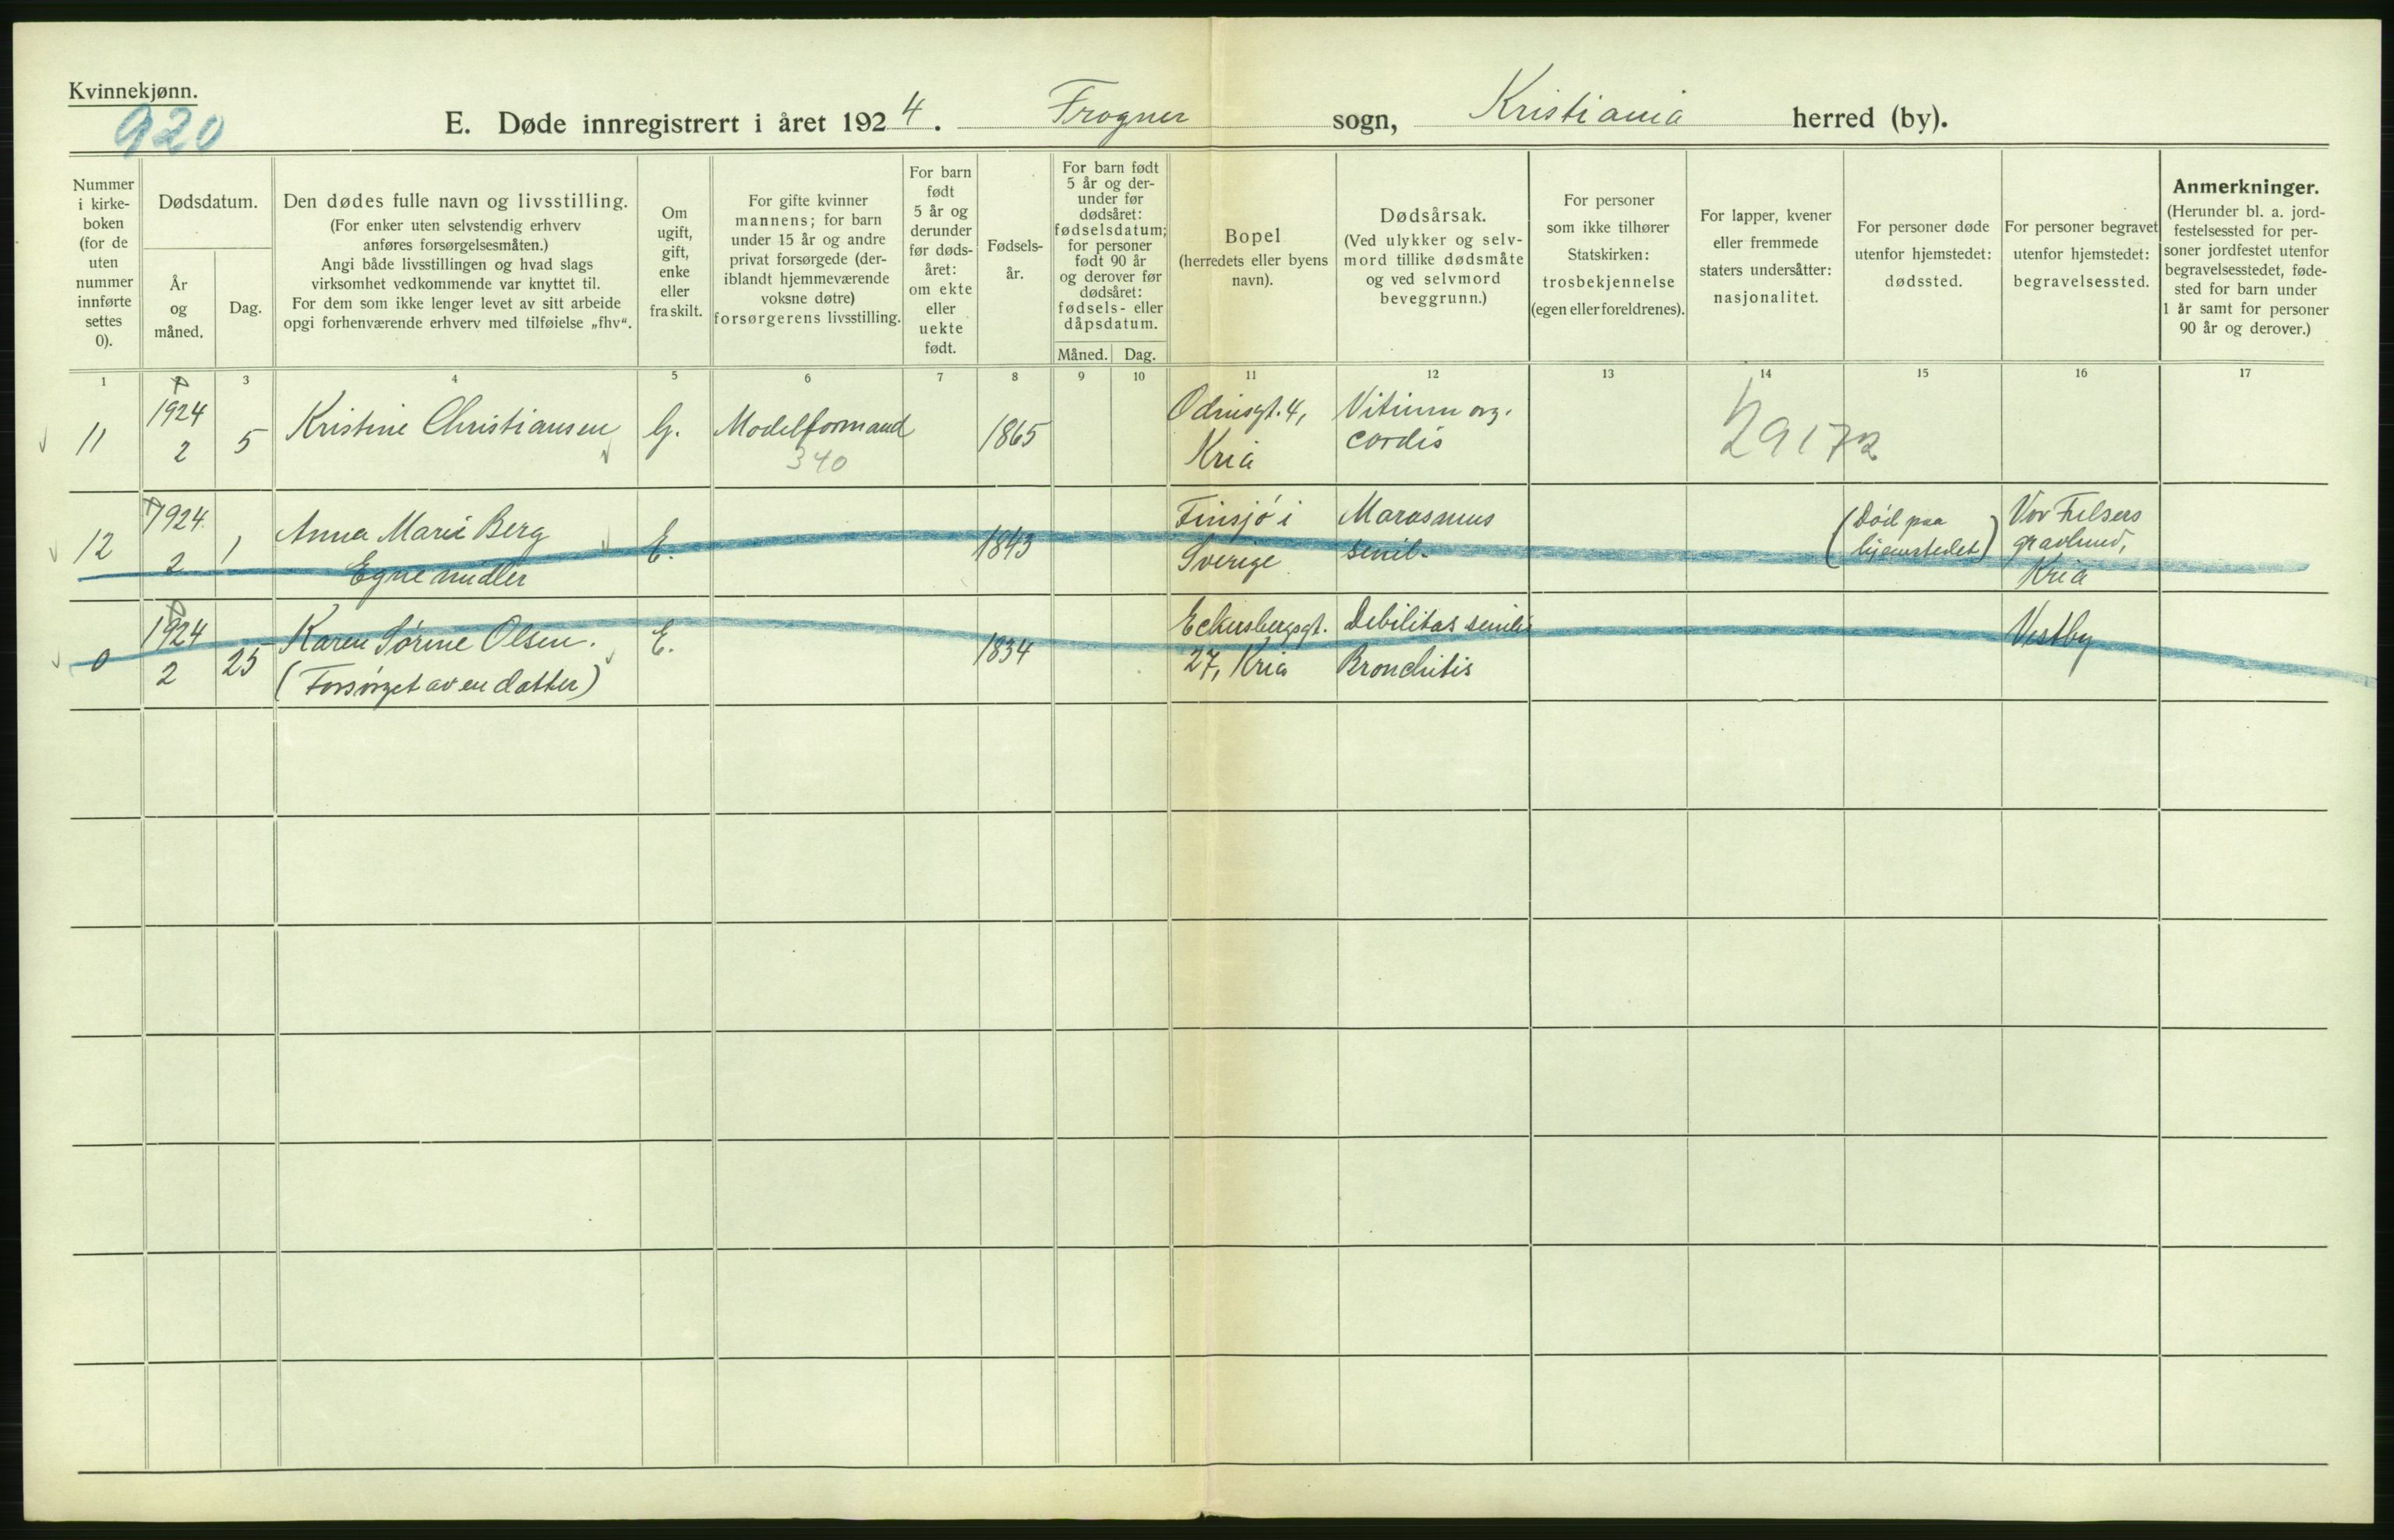 Kvinnekjønn.
920
E. Døde innregistrert i året 1924. Frogner sogn, Kristiania herred (by).
Nummer
i kirke-
boken
(for de
uten
nummer
innførte
settes
0).
Dødsdatum.
År
og
måned.
Dag.
Den dødes fulle navn og livsstilling.
(For enker uten selvstendig erhverv
anføres forsørgelsesmåten.)
Angi både livsstillingen og hvad slags
virksomhet vedkommende var knyttet til.
For dem som ikke lenger levet av sitt arbeide
opgi forhenværende erhverv med tilføielse „fhv“.
Om
ugift,
gift,
enke
eller
fraskilt.
For gifte kvinner
mannens; for barn
under 15 år og andre
privat forsørgede (der-
iblandt hjemmeværende
voksne døtre)
forsørgerens livsstilling.
For barn
født
5 år og
derunder
før døds-
året:
om ekte
eller
uekte
født.
Fødsels-
år.
For barn født
5 år og der-
under før
dødsåret:
fødselsdatum;
for personer
født 90 år
og derover før
dødsåret:
fødsels- eller
dåpsdatum.
Måned. Dag.
Bopel
(herredets eller byens
navn).
Dødsårsak.
(Ved ulykker og selv-
mord tillike dødsmåte
og ved selvmord
beveggrunn.)
For personer
som ikke tilhører
Statskirken:
trosbekjennelse
(egen eller foreldrenes).
For lapper, kvener
eller fremmede
staters undersåtter:
nasjonalitet.
For personer døde
utenfor hjemstedet:
dødssted.
For personer begravet
utenfor hjemstedet:
begravelsessted.
Anmerkninger.
(Herunder bl. a. jord-
festelsessted for per-
soner jordfestet utenfor
begravelsesstedet, føde-
sted for barn under
1 år samt for personer
90 år og derover.)
1 3 4 5 6 7 8 9 10 11 12 13 14 15 16 17
11
1924
2
5
Kristine Christiansen
G.
Modelformand
340
1865
Odinsgt. 4,
Kria
Vitium org.
cordis
29172
12
1924
2
1
Anna Marie Berg
Egne midler
E.
1843
Finsjö i
Sverige
Marasmus
senil.
(Död paa
hjemstedet)
Vor Frelsers
gravlund,
Kria
0
1924
2
25
Karen Sörine Olsen.
(Forsörget av en datter)
E.
1834
Eckersbergsgt.
27, Kria
Debilitas senilis
Bronchitis
Vestby